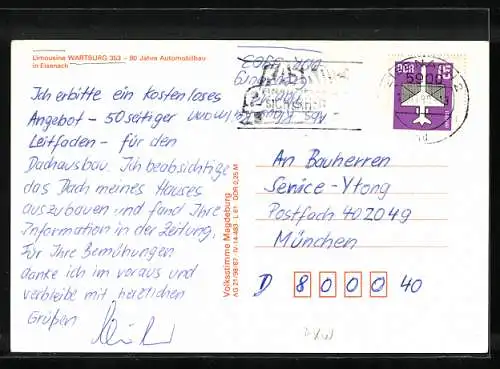 Limousine WARTBURG 353 – 90 Jahre Automobilbau
in Eisenach
Ich erbitte ein kostenloses
Angebot - 50 seitiger
Leitfaden - für den
Dachausbau. Ich beabsichtige
das Dach meines Hauses
auszubauen und fand Ihre
Information in der Zeitung.
Für Ihre Bemühungen
danke ich im voraus und
verbleibe mit herzlichen
Grüßen
Volksstimme Magdeburg
DDR
5900
An Bauherren
Service-Ytong
Postfach 402049
München
D 8000 40